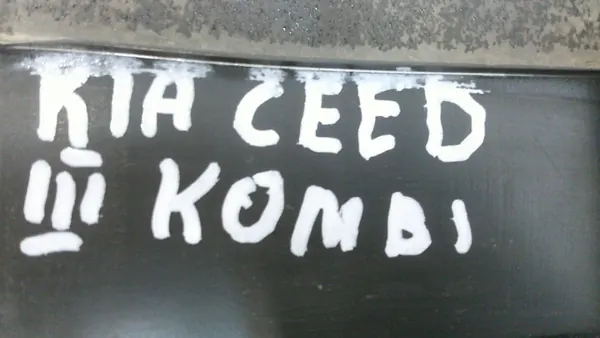 KIA CEED
III KOMBI